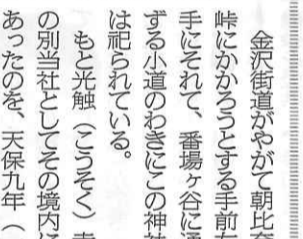 金沢街道がやがて朝比奈
峠にかかろうとする手前
手にそれて、番場ヶ谷に通
ずる小道のわきにこの神社
は祀られている。
もと光触（こうそく）寺
の別当社としてその境内に
あったのを、天保九年（